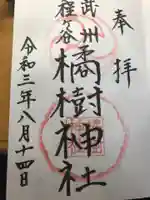 奉拝
武州
程ヶ谷
橘樹神社
令和三年八月十四日